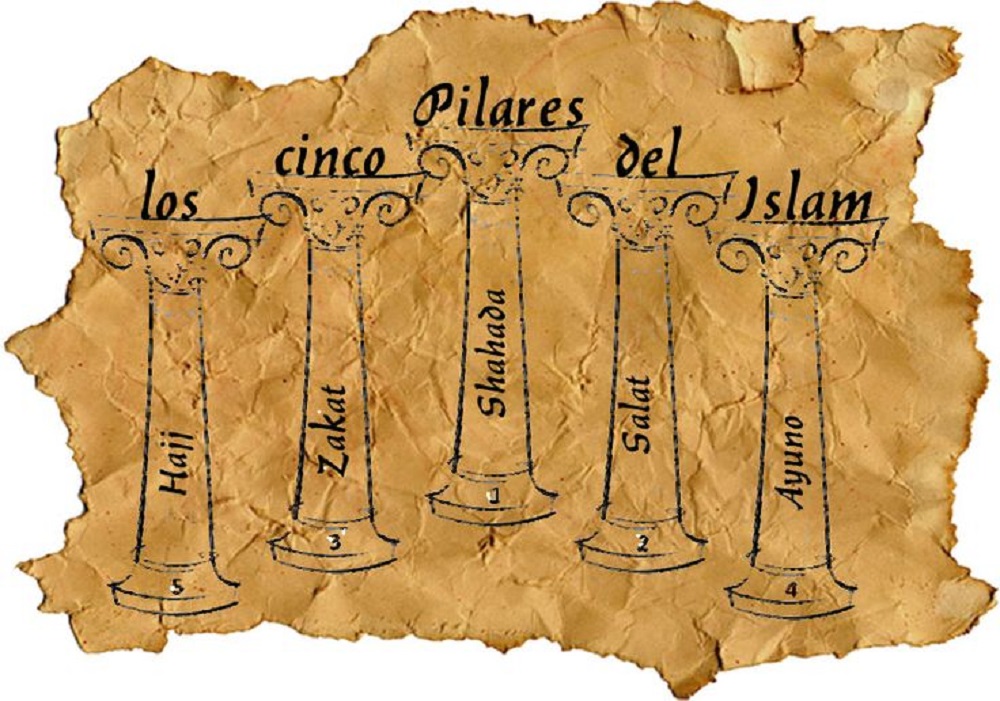 los cinco Pilares del Islam
Hajj
Zakat
Shahada
Salat
Ayuno
5
3
1
2
4